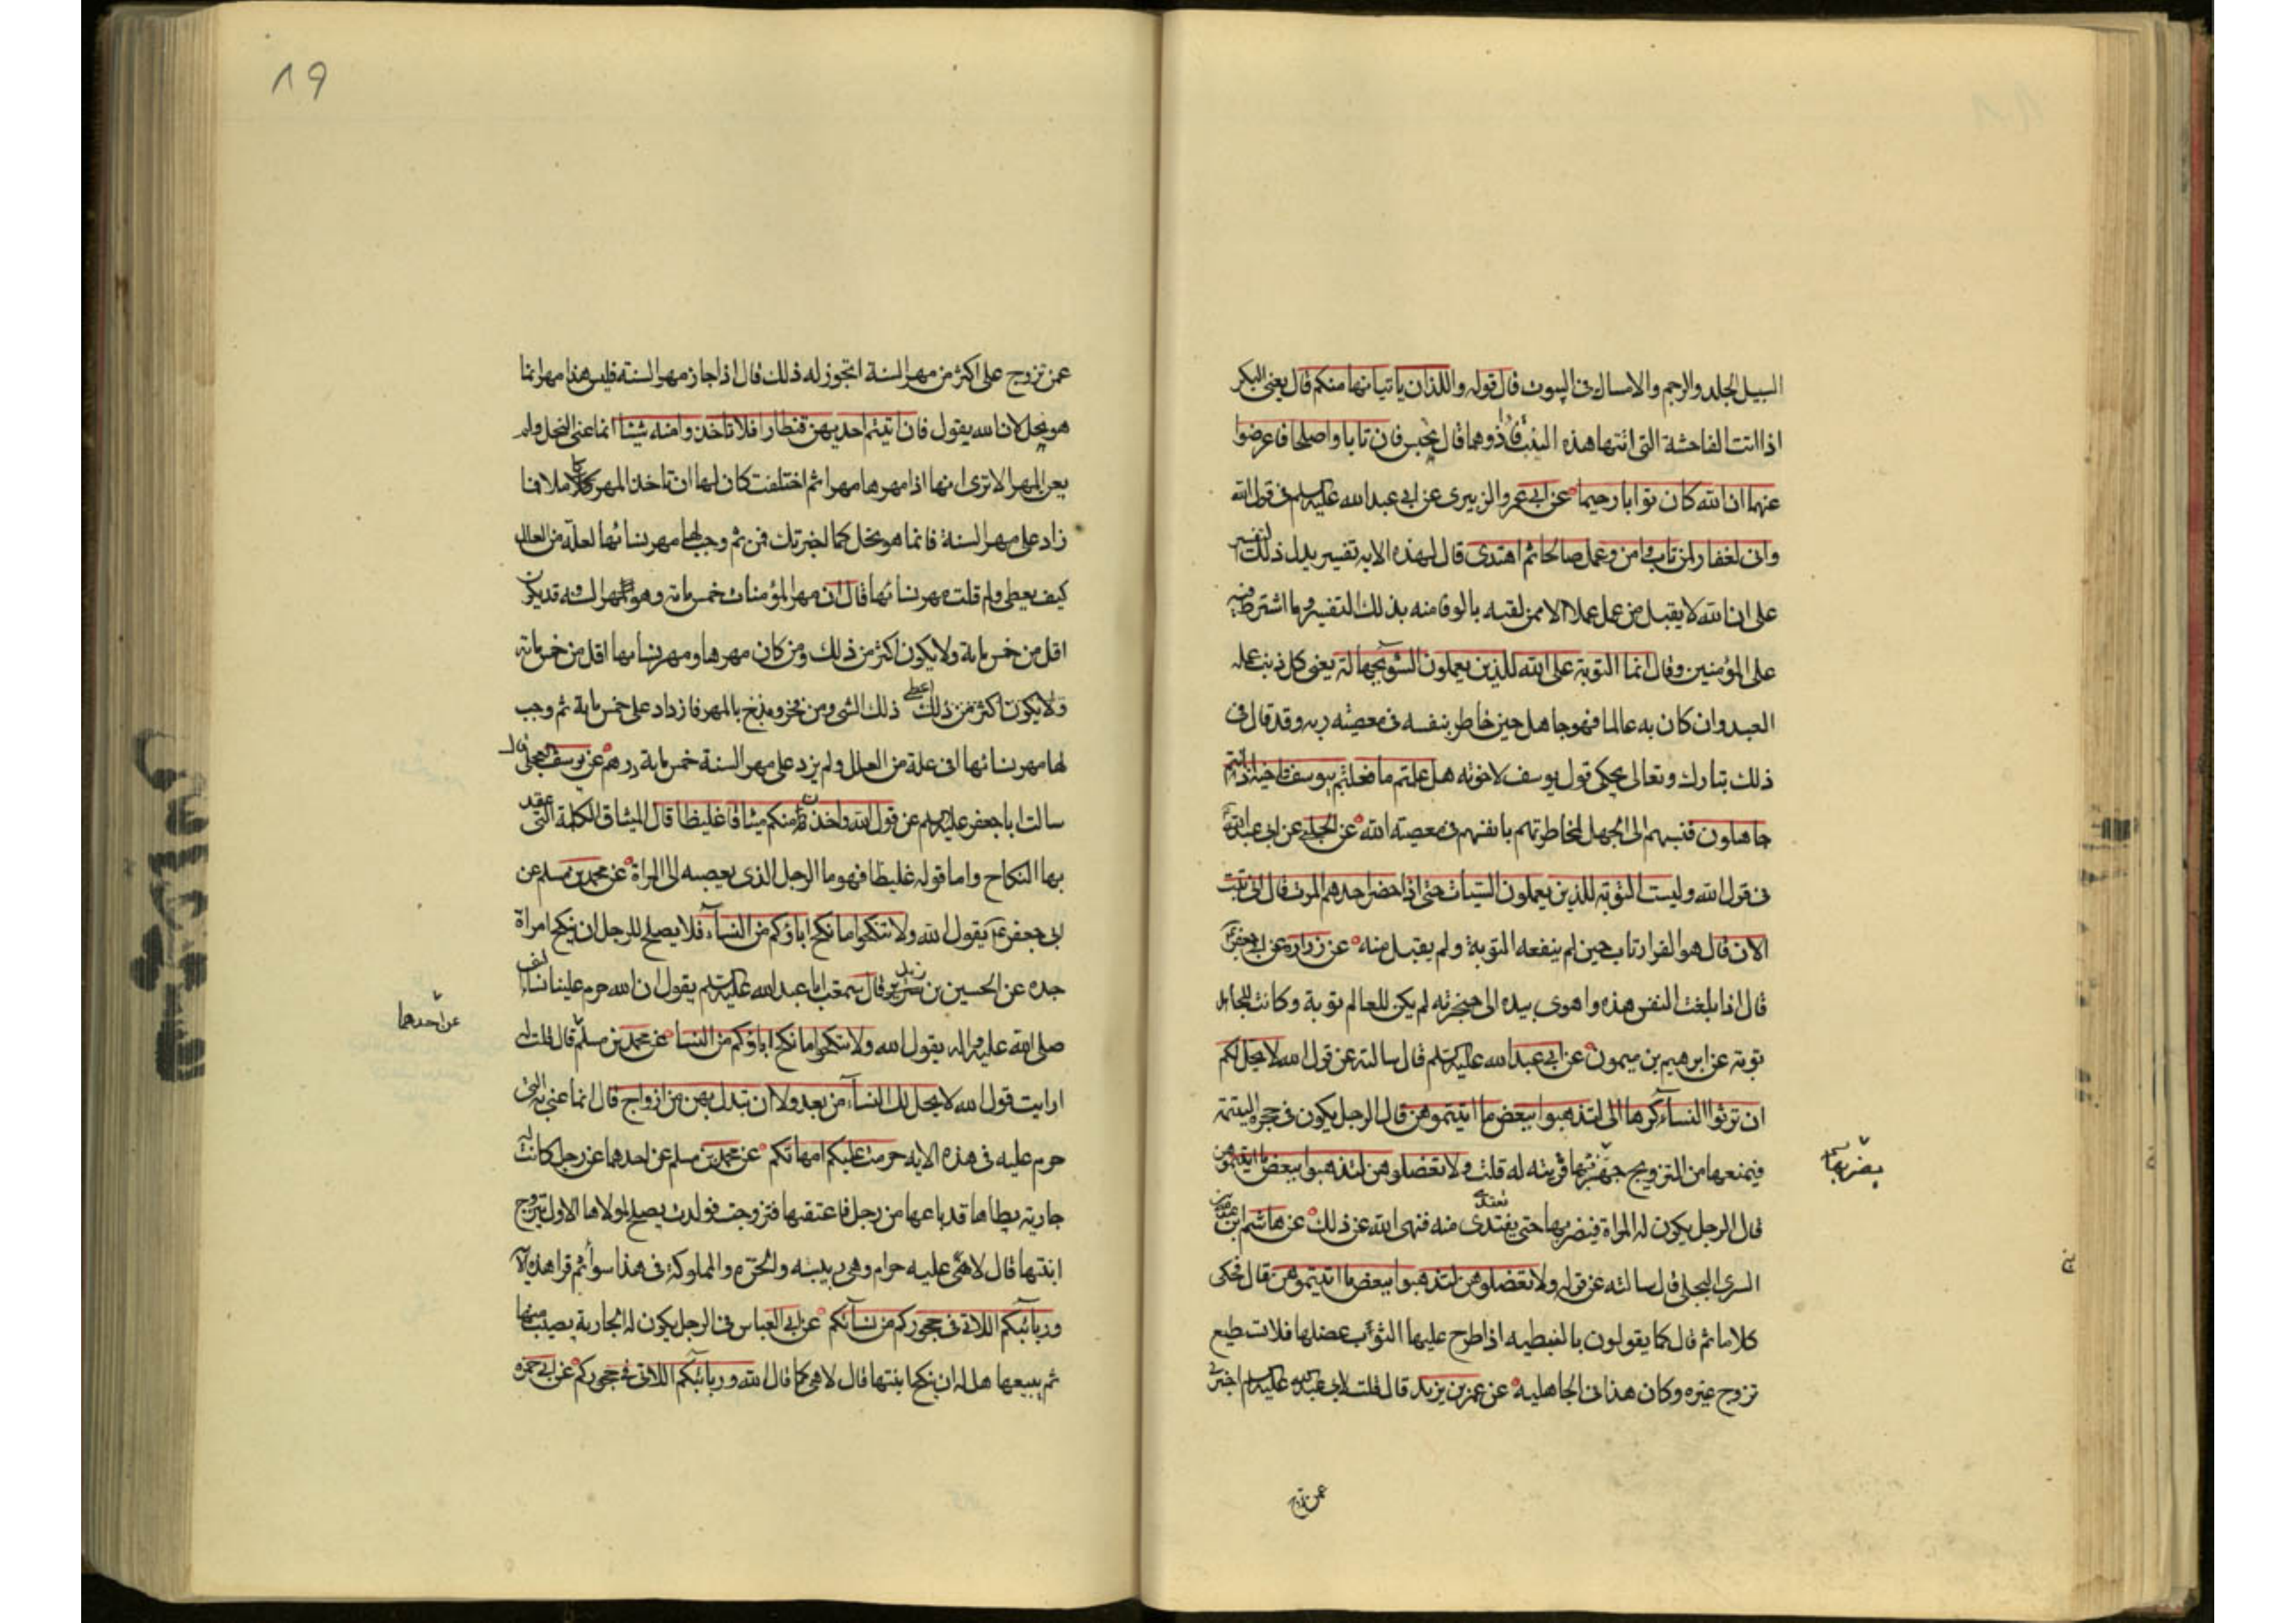 السبيل الجلد والرجم والامساك فى البيوت قال قوله واللذان ياتيانها منكم قال يعنى البكر
اذا اتت الفاحشة التى اتتها هذه الثيب فاذوهما قال تحبس فان تابا واصلحا فاعرضوا
عنهما ان الله كان توابا رحيما عن ابى عمرو الزبيرى عن ابى عبد الله عليه السلم فى قول الله
وانى لغفار لمن تاب وامن وعمل صالحا ثم اهتدى قال لهذه الايه تفسير يدل ذلك التفسير
على ان الله لا يقبل من عمل عملا الا ممن لقيه بالوفا منه بذلك التفسير وما اشترط فيه
على المؤمنين وقال انما التوبة على الله للذين يعملون السوء بجهالة يعنى كل ذنب عمله
العبد وان كان به عالما فهو جاهل حين خاطر بنفسه فى معصيته ربه وقد قال فى
ذلك تبارك وتعالى يحكى قول يوسف لاخوته هل علمتم ما فعلتم بيوسف واخيه اذ انتم
جاهلون فنسبهم الى الجهل لمخاطرتهم بانفسهم فى معصية الله عن الحلبى عن ابى عبد الله
فى قول الله وليست التوبة للذين يعملون السيئات حتى اذا حضر احدهم الموت قال انى تبت
الان قال هو الفرار تاب حين لم ينفعه التوبة ولم يقبل منه عن زرارة عن ابى جعفر
قال اذا بلغت النفس هذه واهوى بيده الى حنجرته لم يكن للعالم توبة وكانت للجاهل
توبة عن ابرهيم بن ميمون عن ابى عبد الله عليه السلم قال سالته عن قول الله لا يحل لكم
ان ترثوا النساء كرها الى لتذهبوا ببعض ما اتيتموهن قال الرجل يكون فى حجره اليتيمة
فيمنعها من التزويج قريبه له قلت ولا تعضلوهن لتذهبوا ببعض ما اتيتموهن
يضر بها
قال الرجل يكون له المراة فيضر بها حتى يفتدى منه فنهى الله عن ذلك عن هاشم بن
السرى البجلى قال سالته عن قوله ولا تعضلوهن لتذهبوا ببعض ما اتيتموهن قال فحكى
كلاما ثم قال كما يقولون بالنبطيه اذا طرح عليها الثوب عضلها فلا تستطيع
تزوج غيره وكان هذا فى الجاهلية عن عمر بن يزيد قال قلت لابى عبد الله عليه السلم اخبرنى
عمن تزوج
٨٩
عمن تزوج على اكثر من مهر السنة ايجوز له ذلك قال اذا جاز مهر السنة فليس هذا مهر انما
هو نحل لان الله يقول فان اتيتم احديهن قنطارا فلا تاخذوا منه شيئا انما عنى النحل ولم
يعن المهر الا ترى انها اذا مهرها مهرا ثم اختلعت كان لها ان تاخذ المهر كاملا فما
زاد على مهر السنة فانما هو نحل كما اخبرتك فمن ثم وجب لها مهر نسائها لعلة من العلل
كيف يعطى ولم قلت مهر نسائها قال ان مهر المؤمنات خمس مائة وهو مهر السنة قد يكون
اقل من خمس مائة ولا يكون اكثر من ذلك ومن كان مهرها ومهر نسائها اقل من خمس مائة
ولا يكون اكثر من ذلك اعطى ذلك الشى ومن فخر وبذخ بالمهر فازداد على خمس مائة ثم وجب
لها مهر نسائها فى علة من العلل ولم يزد على مهر السنة خمس مائة درهم عن يوسف العجلى قال
سالت ابا جعفر عليه السلم عن قول الله واخذن منكم ميثاقا غليظا قال الميثاق الكلمة التى عقد
بها النكاح واما قوله غليظا فهو ما الرجل الذى يفضيه الى المراة عن محمد بن مسلم عن
ابى جعفر يقول الله ولا تنكحوا ما نكح اباؤكم من النساء فلا يصلح للرجل ان ينكح امراة
جده عن الحسين بن زيد قال سمعت ابا عبد الله عليه السلم يقول ان الله حرم علينا نساء النبى
عن احدهما
صلى الله عليه واله يقول الله ولا تنكحوا ما نكح اباؤكم من النسا عن محمد بن مسلم قال قلت له
ارايت قول الله لا يحل لك النساء من بعد ولا ان تبدل بهن من ازواج قال انما عنى به التى
حرم عليه فى هذه الايه حرمت عليكم امهاتكم عن محمد بن مسلم عن احدهما عن رجل كانت له
جارية يطاها قد باعها من رجل فاعتقها فتزوجت فولدت يصلح لمولاها الاول يتزوج
ابنتها قال لا هى عليه حرام وهى ربيبته والحرة والمملوكة فى هذا سواء ثم قرا هذه الاية
وربائبكم اللاتى فى حجوركم من نسائكم عن ابى العباس فى الرجل يكون له الجارية يصيب منها
ثم يبيعها هل له ان ينكح ابنتها قال لا هى كما قال الله وربائبكم اللاتى فى حجوركم عن ابى حمزه